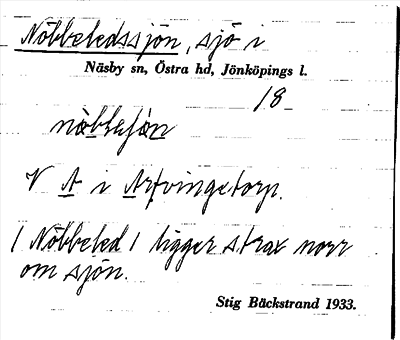 Nöbbeledssjön, sjö i
Näsby sn, Östra hd, Jönköpings l.
18
V A i Arfvingstorp.
/ Nöbbeled / ligger strax norr
om sjön.
Stig Bäckstrand 1933.